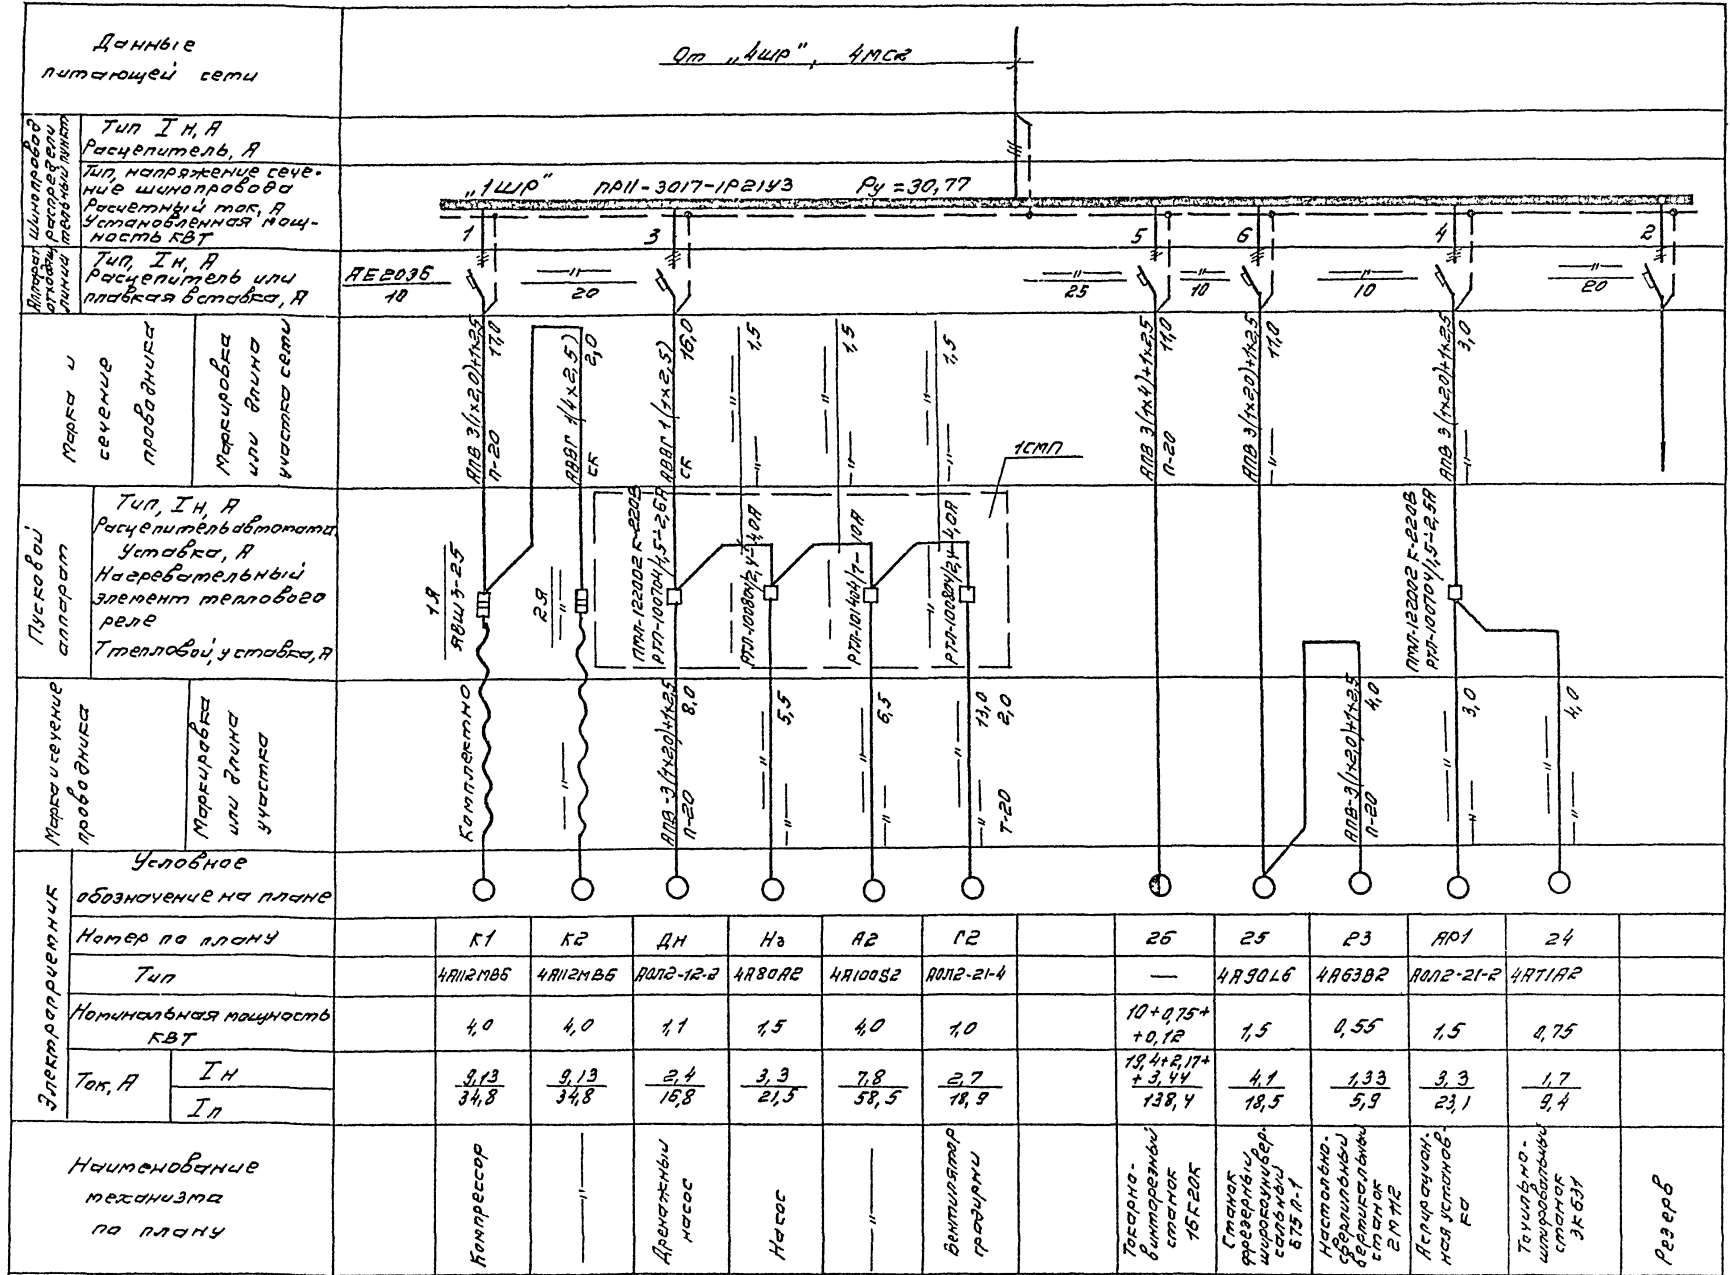 Данные
питающей сети
От „4ШР", 4МСК
Шинопровод
распредели
тельный пункт
Тип Iн, А
Расцепитель, А
Тип, напряжение сече-
ние шинопровода
Расчетный ток, А
Установленная мощ-
ность кВт
„1ШР" ПР11-3017-1Р21У3 Ру=30,77
1 3 5 6 4 2
Аппарат
отходящ.
линий
Тип, Iн, А
Расцепитель или
плавкая вставка, А
АЕ2036
10
—"—
20
—"—
25
—"—
10
—"—
10
—"—
20
Марка и
сечение
проводника
Маркировка
или длина
участка сети
АПВ 3(1х2,0)+1х2,5
17,0
П-20
АВВГ 1(4х2,5)
2,0
СК
АВВГ 1(1х2,5)
16,0
СК
—"—
1,5
—"—
—"—
1,5
—"—
—"—
1,5
—"—
1СМП
АПВ 3(1х4)+1х2,5
11,0
П-20
АПВ 3(1х20)+1х2,5
17,0
—"—
АПВ 3(1х20)+1х2,5
3,0
—"—
Пусковой
аппарат
Тип, Iн, А
Расцепитель автомата
Уставка, А
Нагревательный
элемент теплового
реле
Т тепловой, уставка, А
1Я
ЯВШ 3-25
2Я
—"—
ПМЛ-122002 К-220В
РТЛ-100704/1,5-2,6А
РТЛ-100804/2,4-4,0А
—"—
РТЛ-101404/7-10А
РТЛ-100804/2,4-4,0А
ПМЛ-122002 К-220В
РТЛ-100704/1,5-2,6А
Марка и сечение
проводника
Маркировка
или длина
участка
Комплектно
—"—
АПВ-3(1х20)+1х2,5
8,0
П-20
—"—
5,5
—"—
—"—
6,5
—"—
—"—
13,0
2,0
—"—
Т-20
АПВ-3(1х2,0)+1х2,5
4,0
П-20
—"—
3,0
—"—
—"—
4,0
—"—
Электроприемник
Условное
обозначение на плане
Номер по плану К1 К2 ДН Нз А2 Г2 26 25 23 АР1 24
Тип 4А112МВ6 4А112МВ6 АОЛ2-12-2 4А80А2 4А100S2 АОЛ2-21-4 — 4А90L6 4А63В2 АОЛ2-21-2 4А71А2
Номинальная мощность
кВт
4,0 4,0 1,1 1,5 4,0 1,0 10+0,75+
+0,12 1,5 0,55 1,5 0,75
Ток, А
Iн 9,13 9,13 2,4 3,3 7,8 2,7 19,4+2,17+
+3,44 4,1 1,33 3,3 1,7
Iп 34,8 34,8 16,8 21,5 58,5 18,9 138,4 18,5 5,9 23,1 9,4
Наименование
механизма
по плану
Компрессор
—"—
Дренажный
насос
Насос
—"—
Вентилятор
градирни
Токарно-
винторезный
станок
16К20К
Станок
фрезерный
широкоунивер-
сальный
675П-1
Настольно-
сверлильный
вертикальный
станок
2М112
Аспирацион-
ная установ-
ка
Точильно-
шлифовальный
станок
3К631
Резерв